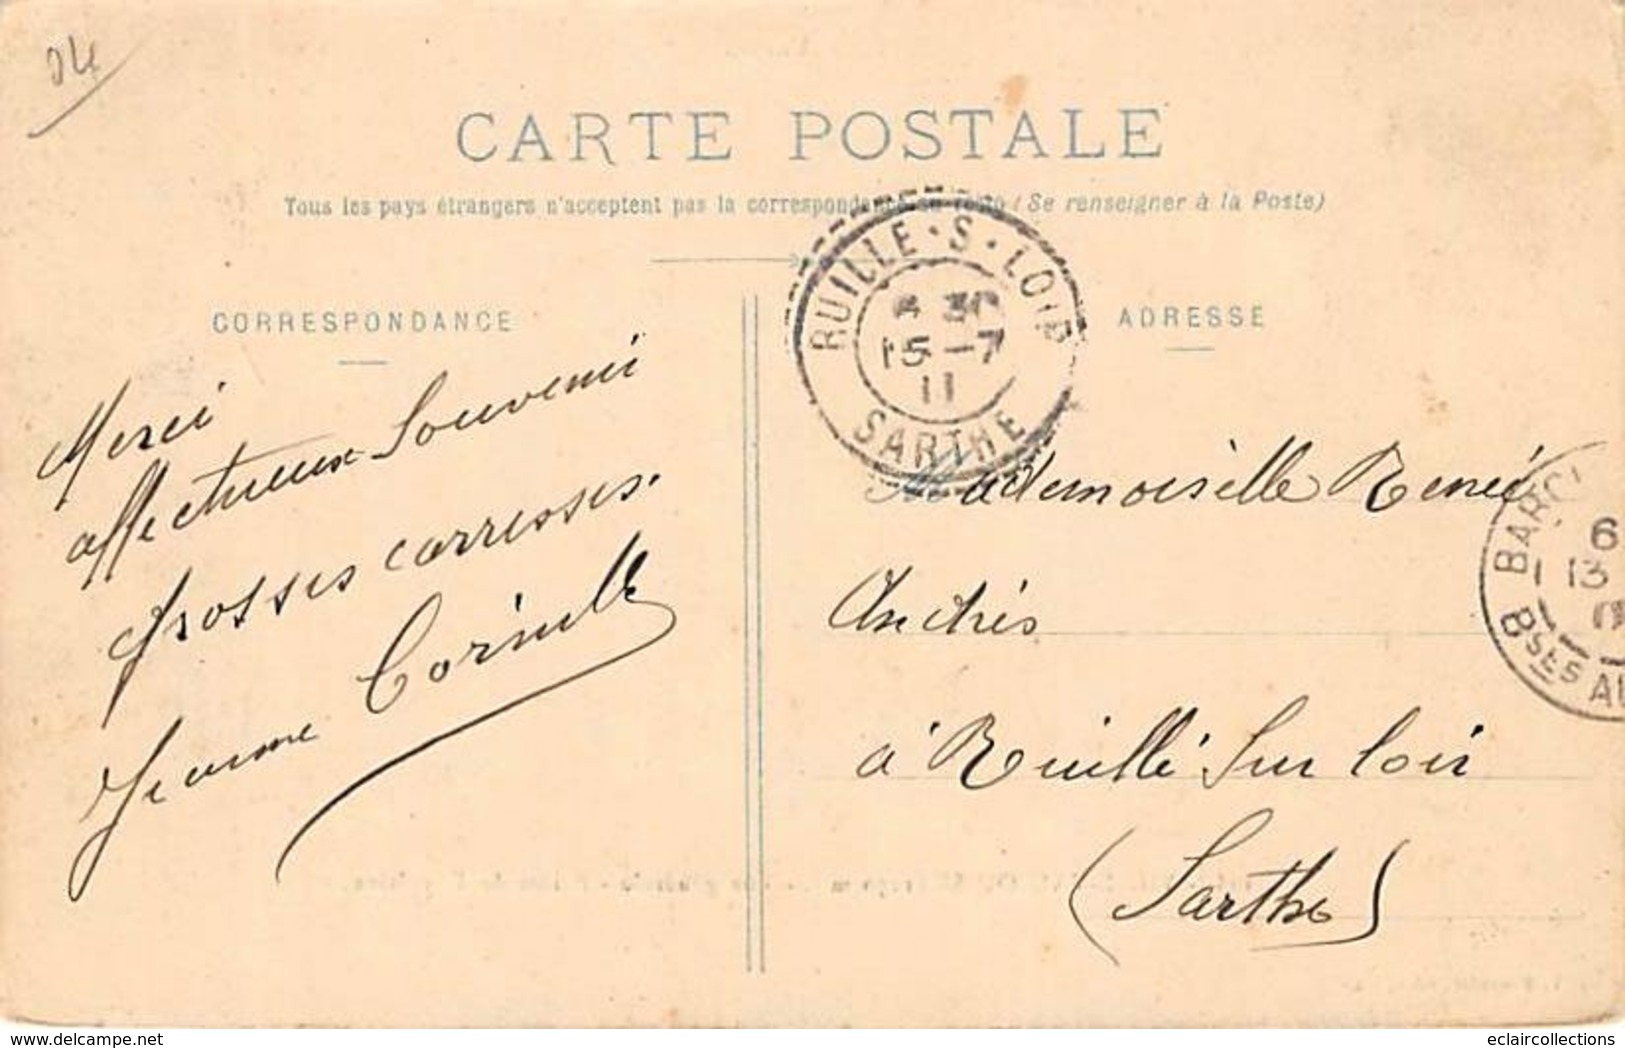 04
CARTE POSTALE
Tous les pays étrangers n'acceptent pas la correspondance au recto (Se renseigner à la Poste)
CORRESPONDANCE
Merci
affectueux Souvenir
Grosses carresses.
Jeanne Cornille
RUILLE·S·LOIR
15-7
11
SARTHE
ADRESSE
Mademoiselle Renée
Andrés
à Ruillé Sur Loir
(Sarthe)
6
13
BSES AL
delcampe.net
eclaircollections